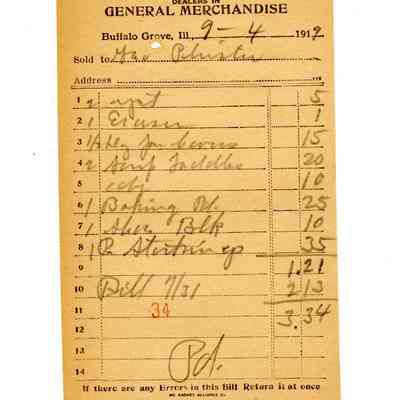 DEALERS IN
GENERAL MERCHANDISE
Buffalo Grove, Ill., 9-4 1919
Sold to Geo
Address
1 2 5
2 1 Eraser 1
3 1/2 15
4 2 20
5 10
6 1 Baking Pd. 25
7 1 Shoe Blk 10
8 1 Pr Stockings 35
9 1.21
10 Bill 7/31 2 13
11 34 3.34
12
13 Pd.
14
If there are any Errors in this Bill Return it at once